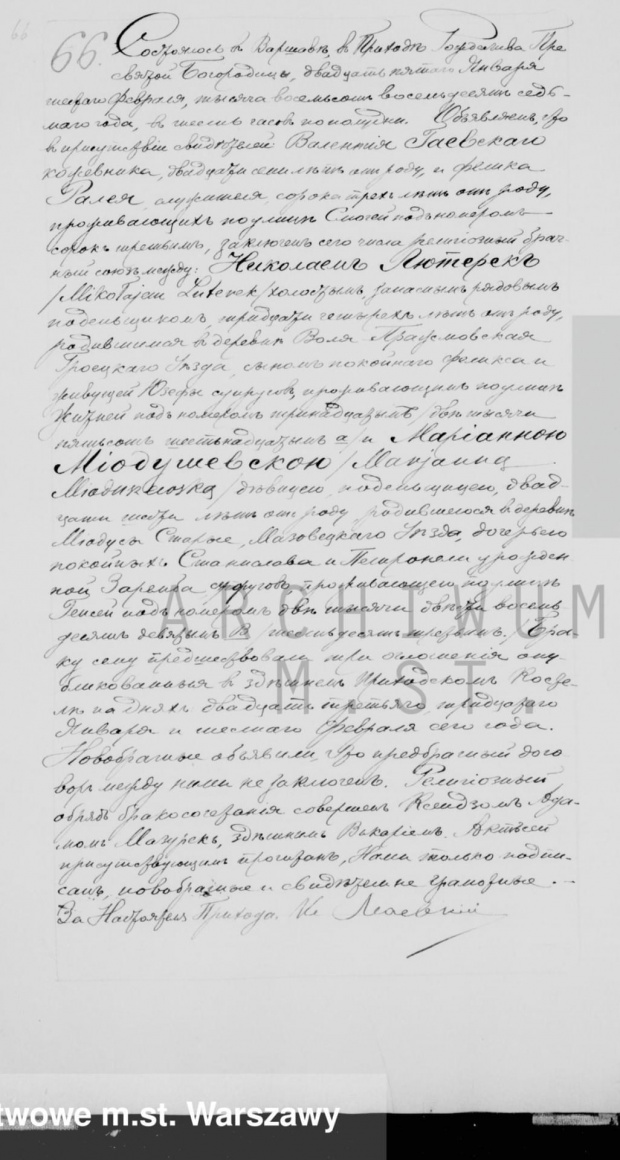 66
66.
Состоялось въ Варшавѣ, въ Приходѣ Рождества Пре
святой Богородицы, двадцать пятаго Января
шестаго Февраля, тысяча восемьсотъ восемьдесятъ седь-
маго года, въ шесть часовъ по полудни. Объявляемъ, что
въ присутствіи свидѣтелей Валентія Гаевскаго
кожевника, двадцати семи лѣтъ отъ роду, и Феликса
Ралея, служителя, сорока трехъ лѣтъ отъ роду,
проживающихъ по улицѣ Смочей подъ номеромъ
сорокъ третьимъ, заключенъ сего числа религіозный брач-
ный союзъ между: Николаемъ Лютерекъ
/Mikołajem Luterek/ холостымъ, запаснымъ рядовымъ
поденьщикомъ тридцати четырехъ лѣтъ отъ роду,
родившимся въ деревни Воля Праусмовская
Гроецкаго Уѣзда, сыномъ покойнаго Феликса и
живущей Юзефы супруговъ, проживающимъ по улицѣ
Жизней подъ номеромъ тринадцатымъ /двѣ тысячи
пятьсотъ шестьнадцатымъ а/ и Маріанною
Міодушевскою /Marjanną
/ дѣвицею, поденьщицею, двад-
цати лѣтъ отъ роду родившеюся въ деревни
Міодусы Старые, Мазовецкаго Уѣзда, дочерью
покойныхъ: Станислава и Петронели урожден-
ной Заремба супруговъ, проживающею по улицѣ
Генсей подъ номеромъ двѣ тысячи двѣсти восемь-
десятъ девятымъ В /шестьдесятъ третьимъ./ Бра-
ку сему предшествовали три оглашенія опу-
бликованныя въ здѣшнемъ приходскомъ Косте-
лѣ на дняхъ двадцать третьяго, тридцатаго
Января и шестаго Февраля сего года.
Новобрачные объявили, что предбрачный дого
воръ между ними не заключенъ. Религіозный
обрядъ бракосочетанія совершенъ Ксендзомъ Ада-
момъ Мазурекъ, здѣшнимъ Викаріемъ. Актъ сей
присутствующимъ прочитанъ, Нами только подпи-
санъ, новобрачные и свидѣтели не грамотные.
За Настоятеля Прихода. Кс
ARCHIWUM
M. ST.
twowe m.st. Warszawy